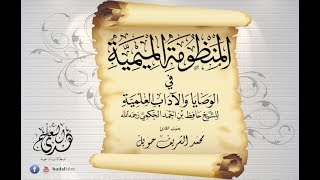 المنظومة الميمية
في
الوصايا والآداب العلمية
للشيخ حافظ بن أحمد الحكمي رحمه الله
محمد الشريف حويل
hudal3lm